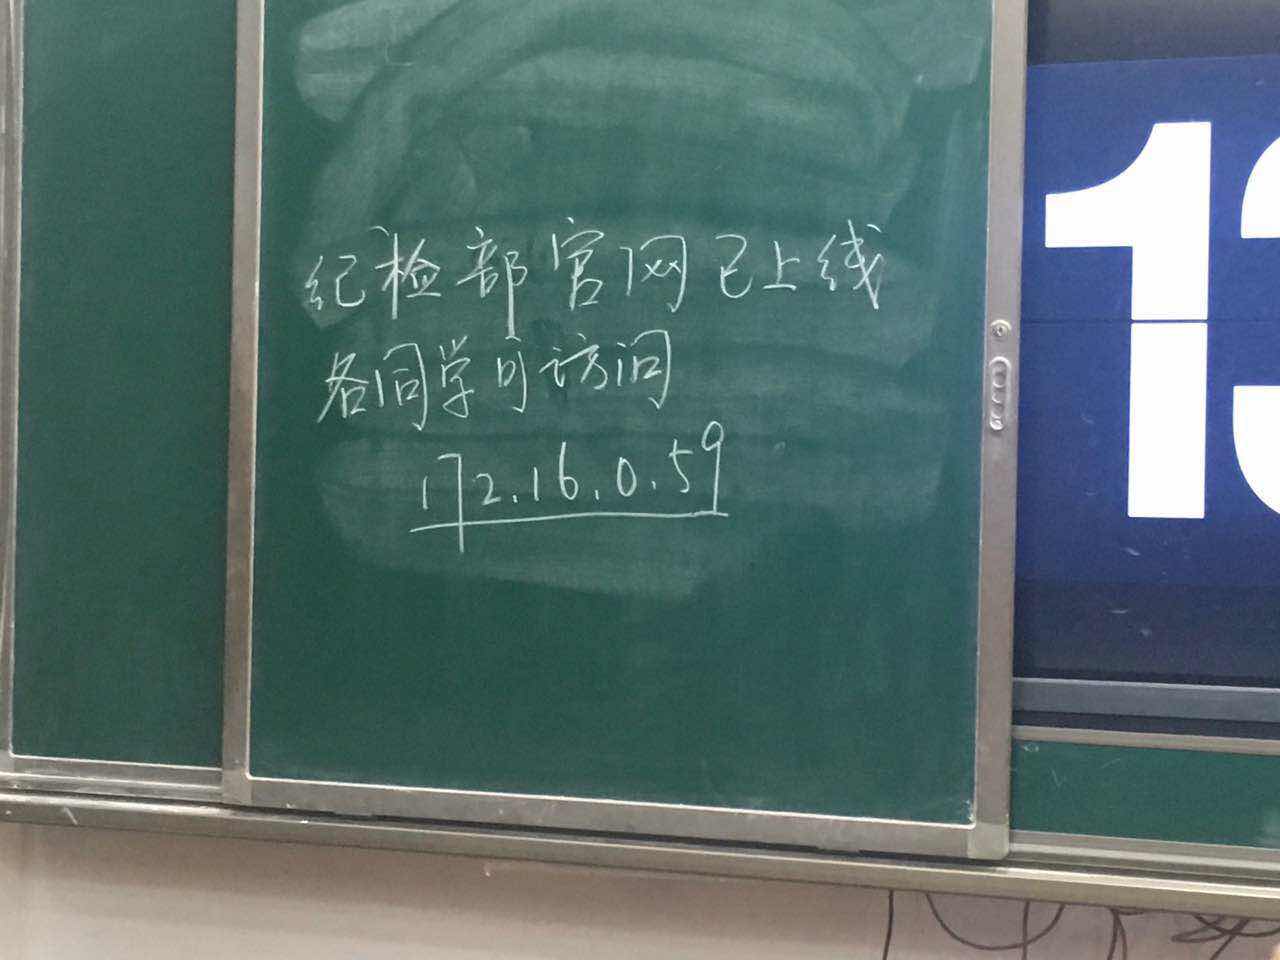 纪检部官网已上线
各同学可访问
172.16.0.59
1